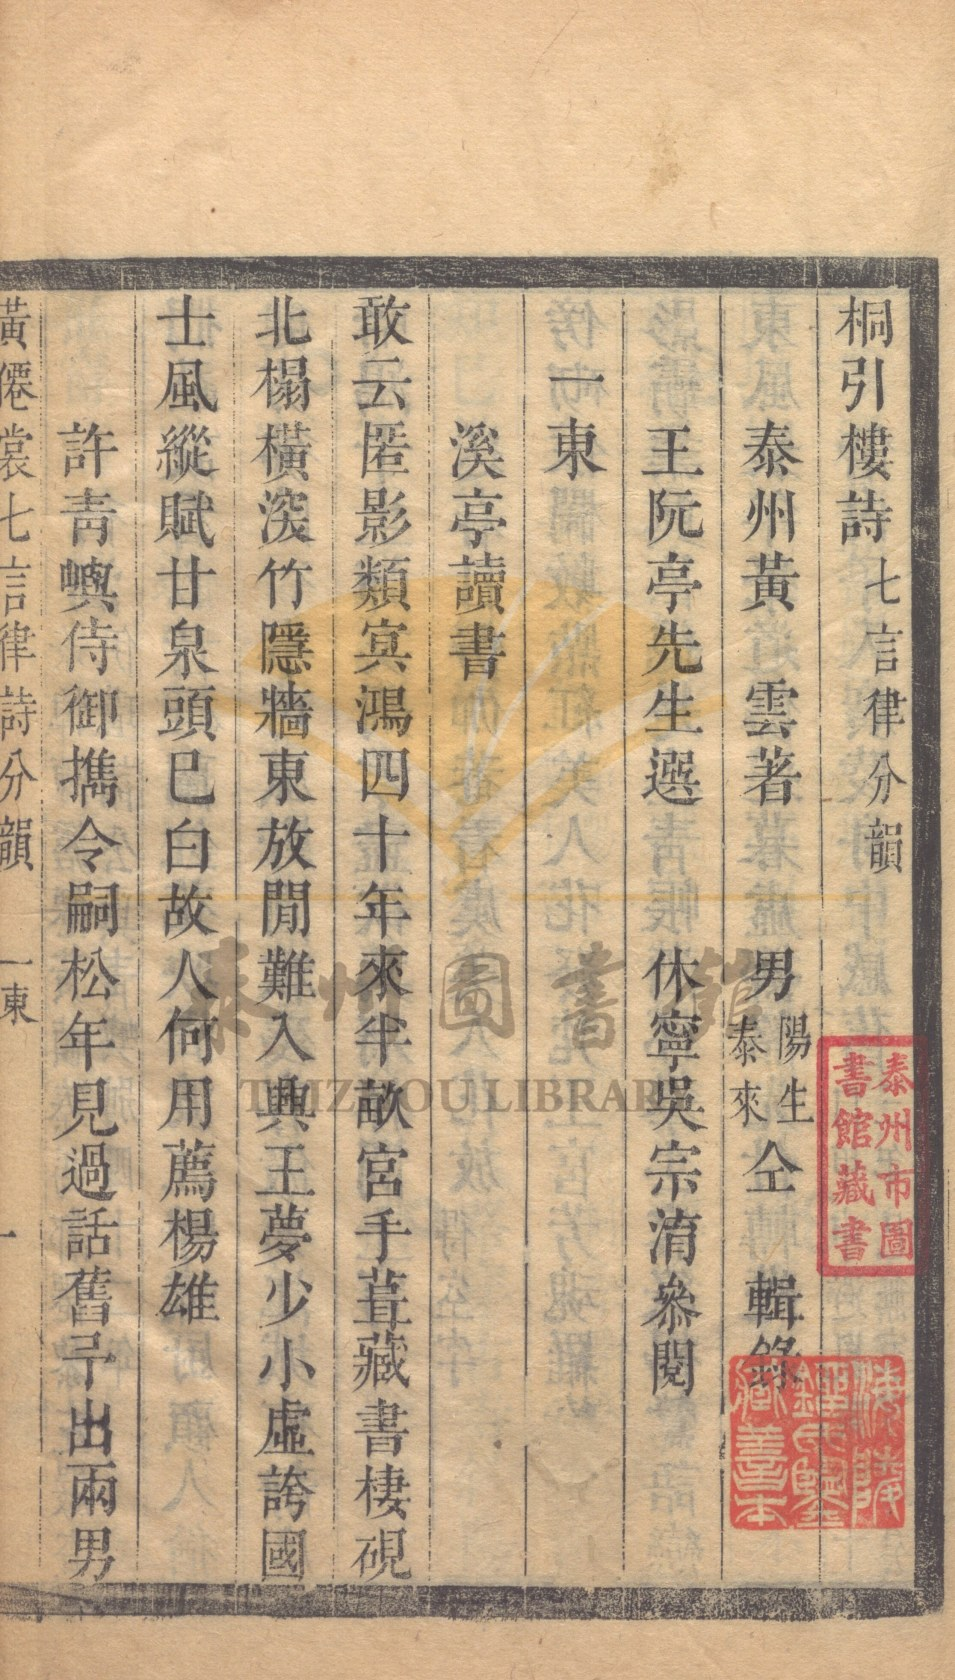 桐引樓詩 七言律分韻
泰州黃道雲著 男 陽生 泰來 仝 輯錄
王阮亭先生選 休寧吳宗洧叅閱
一東
溪亭讀書
敢云匿影類寅鴻四十年來半畝宮手葺藏書棲硯
北榻橫深竹隱牆東放閒難入典王夢少小虛誇國
士風縱賦甘泉頭巳白故人何用薦楊雄
許青嶼侍御擕令嗣松年見過話舊予出兩男
黃僊裳七言律詩分韻 一東 一
泰州市圖
書館藏書
海陵
藏善本
泰州圖書館
TAIZHOU LIBRARY